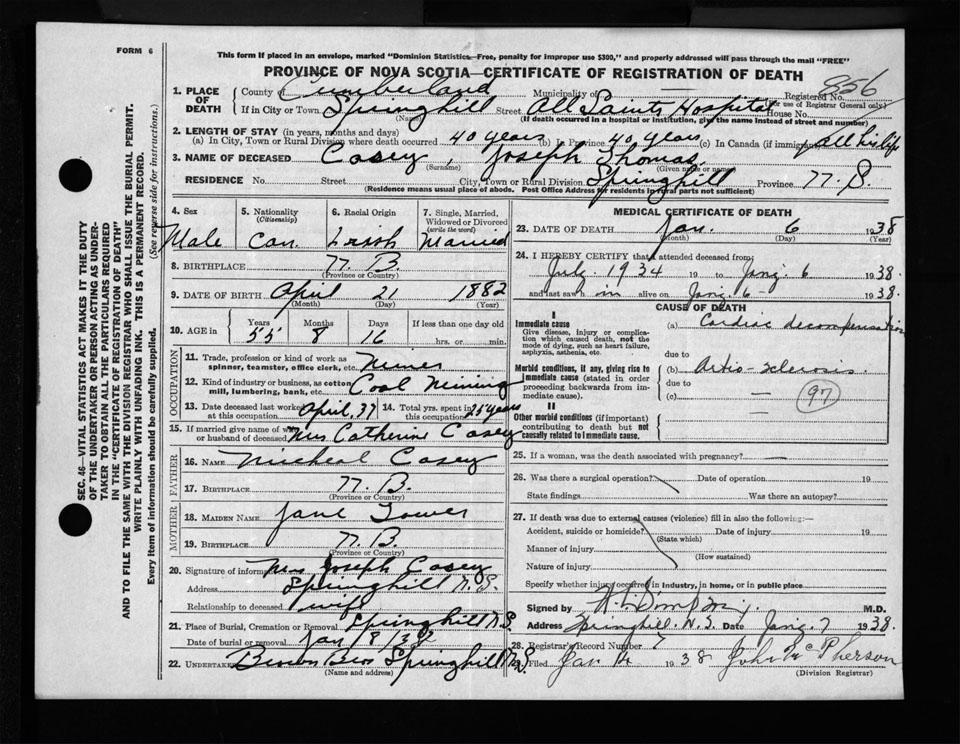 FORM 6
This form if placed in an envelope, marked "Dominion Statistics—Free, penalty for improper use $300," and properly addressed will pass through the mail "FREE"
PROVINCE OF NOVA SCOTIA—CERTIFICATE OF REGISTRATION OF DEATH
856
1. PLACE OF DEATH
County of Cumberland Municipality of — Registered No.
(For use of Registrar General only)
If in City or Town Springhill Street All Saints Hospital House No.
(Name) (If death occurred in a hospital or institution, give the name instead of street and number)
2. LENGTH OF STAY (in years, months and days)
(a) In City, Town or Rural Division where death occurred 40 years (b) In Province 40 years (c) In Canada (if immigrant) all his life
3. NAME OF DECEASED Casey, Joseph Thomas
(Surname) (Given name or names)
RESIDENCE No. Street City, Town or Rural Division Springhill Province N. S.
(Residence means usual place of abode. Post Office Address for residents in rural parts not sufficient)
4. Sex
Male
5. Nationality (Citizenship)
Can.
6. Racial Origin
Irish
7. Single, Married, Widowed or Divorced (write the word)
Married
8. BIRTHPLACE N. B.
(Province or Country)
9. DATE OF BIRTH April 21 1882
(Month) (Day) (Year)
10. AGE in
Years Months Days If less than one day old
55 8 16 hrs. or min.
OCCUPATION
11. Trade, profession or kind of work as spinner, teamster, office clerk, etc. Miner
12. Kind of industry or business, as cotton mill, lumbering, bank, etc. Coal Mining
13. Date deceased last worked at this occupation April, 37 14. Total yrs. spent in this occupation 25 years
15. If married give name of wife or husband of deceased Mrs Catherine Casey
FATHER
16. NAME Micheal Casey
17. BIRTHPLACE N. B.
(Province or Country)
MOTHER
18. MAIDEN NAME Jane Tower
19. BIRTHPLACE N. B.
(Province or Country)
20. Signature of informant Mrs Joseph Casey
Address Springhill N. S.
Relationship to deceased wife
21. Place of Burial, Cremation or Removal Springhill N.S.
Date of burial or removal Jan 8/38
22. UNDERTAKER Brown Bros Springhill N.S.
(Name and address)
MEDICAL CERTIFICATE OF DEATH
23. DATE OF DEATH Jan. 6 1938
(Month) (Day) (Year)
24. I HEREBY CERTIFY that I attended deceased from:
July 1934 19 to Jan. 6 1938.
and last saw him alive on Jan. 6 - 1938.
CAUSE OF DEATH
I
Immediate cause
Give disease, injury or complication which caused death, not the mode of dying, such as heart failure, asphyxia, asthenia, etc.
(a) Cardiac decompensation
due to
Morbid conditions, if any, giving rise to immediate cause (stated in order proceeding backwards from immediate cause).
(b) Artio-sclerosis.
due to
(c) —
97
II
Other morbid conditions (if important) contributing to death but not causally related to immediate cause.
—
25. If a woman, was the death associated with pregnancy? —
26. Was there a surgical operation? Date of operation 19
State findings Was there an autopsy?
27. If death was due to external causes (violence) fill in also the following:—
Accident, suicide or homicide? Date of injury 19
(State which)
Manner of injury
(How sustained)
Nature of injury
Specify whether injury occurred in industry, in home, or in public place
Signed by M.D.
Address Springhill. N. S. Date Jan. 7 1938.
28. Registrar's Record Number 7
29. Filed Jan 14 1938 John McPherson
(Division Registrar)
SEC. 46—VITAL STATISTICS ACT MAKES IT THE DUTY
OF THE UNDERTAKER OR PERSON ACTING AS UNDER-
TAKER TO OBTAIN ALL THE PARTICULARS REQUIRED
IN THE "CERTIFICATE OF REGISTRATION OF DEATH"
AND TO FILE THE SAME WITH THE DIVISION REGISTRAR WHO SHALL ISSUE THE BURIAL PERMIT.
WRITE PLAINLY WITH UNFADING INK. THIS IS A PERMANENT RECORD.
Every item of information should be carefully supplied. (See reverse side for instructions.)